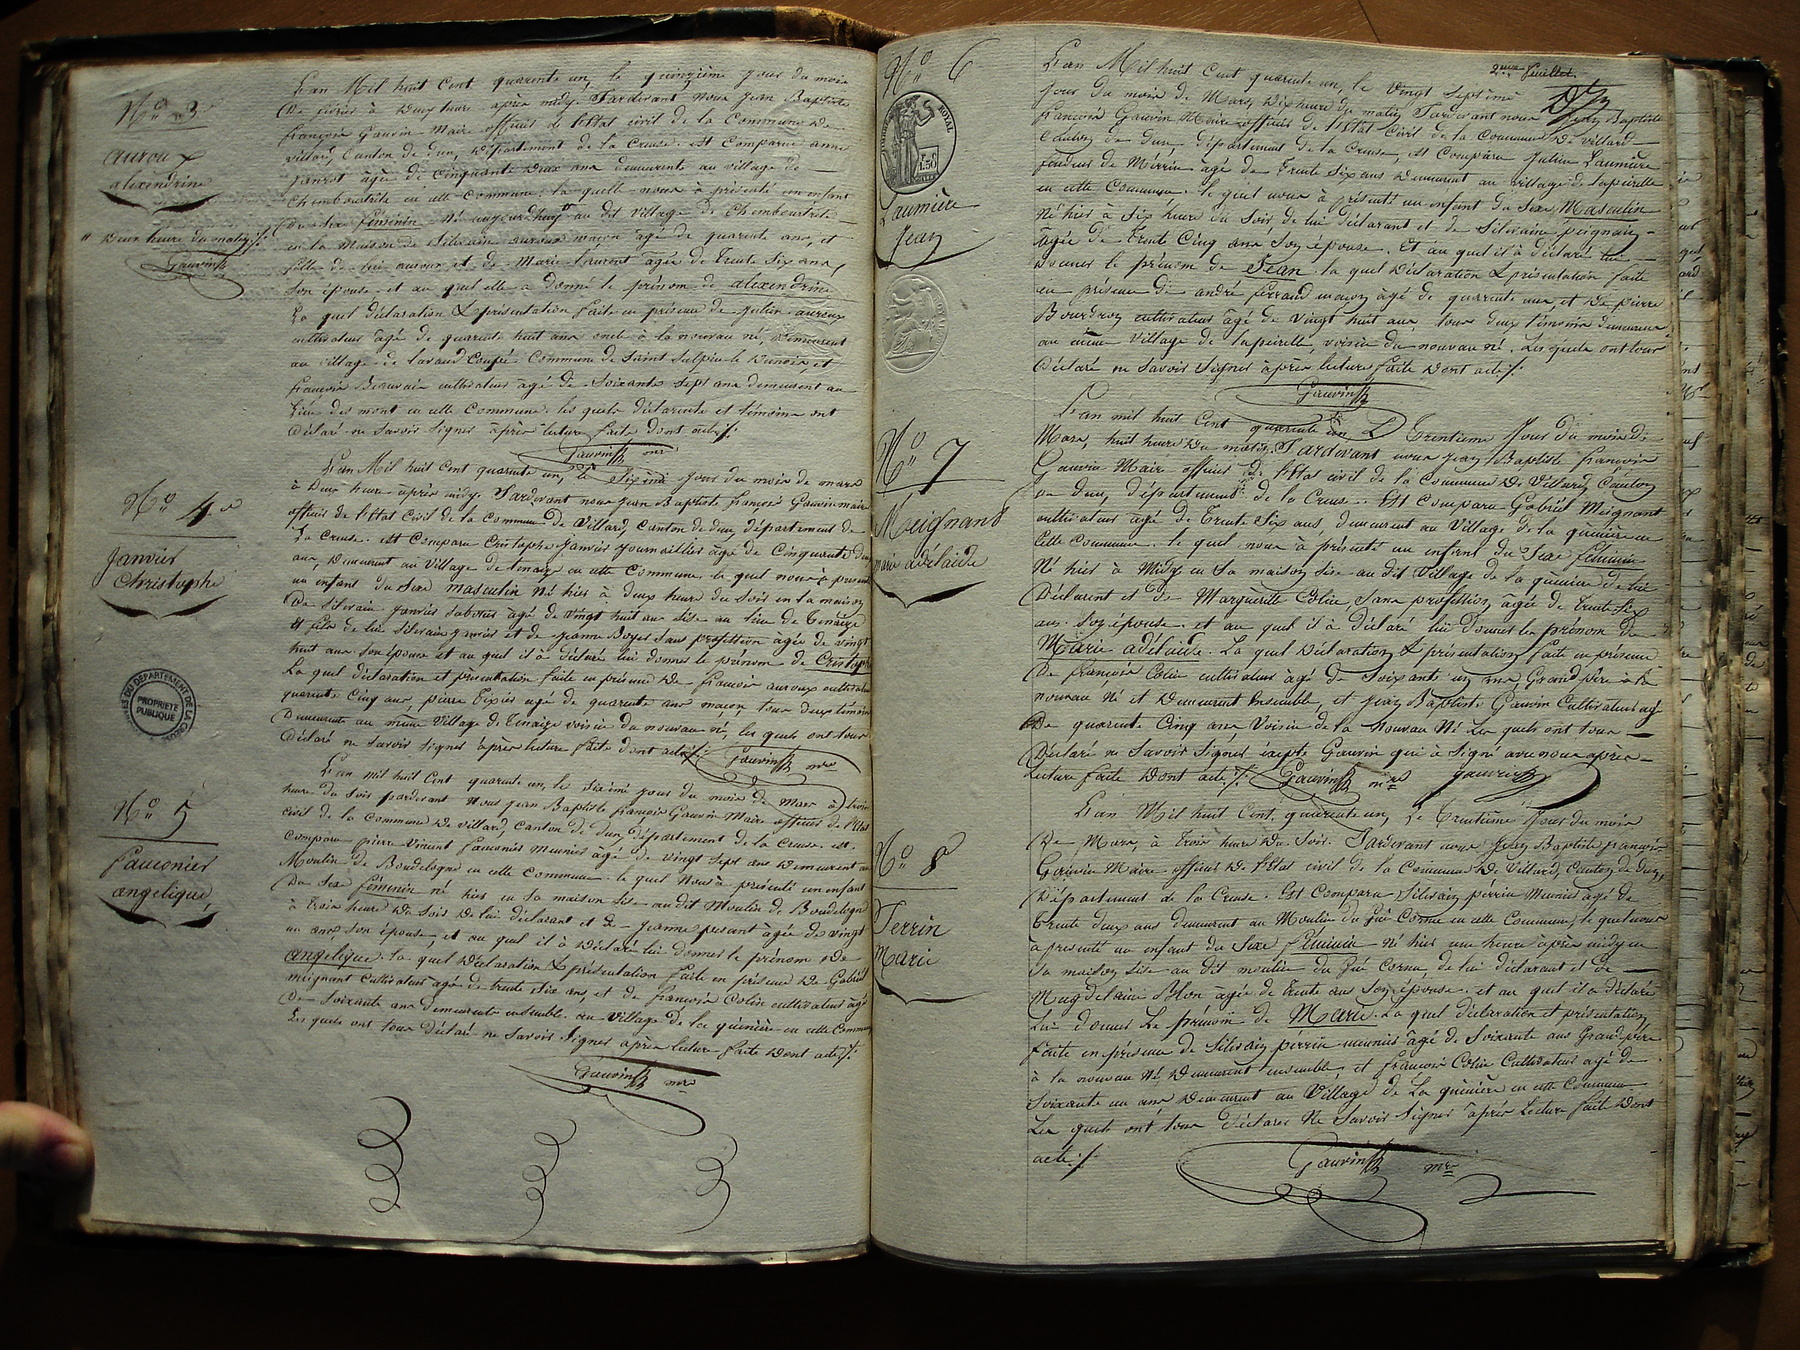 No 3
auroux
alexendrine
" Deux heure du matin ./.
Gauvin
L'an Mil huit Cent quarente un, le quinzième jour du mois
De février à Deux heure après midy. Pardevant Nous Jean Baptiste
françois Gauvin Maire officier de l'Etat civil de la Commune De
villard, Canton de dun, Département de la Creuse. est Comparue anne
âgée de cinquante Deux ans demeurente au village de
Chemboutrete en cette Commune. la quelle nous à présenté un enfant
Du Sexe féminin Né aujourdhuy " au dit Village de Chemboutrete
en la Maison de Silvain auroux maçon âgé de quarente ans, et
fille de lui auroux et de Marie laurent âgée de trente Six ans,
Son épouse. et au quel elle a donné le prénom de alexendrine
La quel déclaration & présentation faite en présence de Julien auroux
cultivateur âgé de quarente huit ans oncle à la nouveau né, Demeurent
au village de lavaud Coupé Commune de Saint Sulpice le Dunois, et
françois Beauvais cultivateur âgé de Soixante Sept ans demeurent au
lieu des mont en cette Commune. les quels déclarente et témoins ont
Déclaré ne Savoir Signer après lecture faite dont acte ./.
Gauvin mre
No 4
Janvier
Christophe
L'an Mil huit Cent quarente un, le Sixième jour du mois de mars
à Deux heure après midy. Pardevant nous Jean Baptiste françois Gauvin maire
officier de l'Etat Civil de la Commune de Villard, Canton de dun, département de
La Creuse. est Comparu Cristophe Janvier journaillier âgé de Cinquante
ans, Demeurent au Village de tenaize en cette Commune, le quel nous à présenté
un enfant du Sexe masculin Né hier à deux heure du Soir en la maison
De Silvain Janvier laboreur âgé de vingt huit ans Sise au lieu de tenaize
et fils de lui Silvain Janvier et de Jeanne Boyer Sans profession âgée de vingt
huit ans Son épouse et au quel il à déclaré lui donner le prénom de Cristophe
La quel déclaration et présentation faite en présence De françois auroux cultivateur
quarente Cinq ans, pierre Tixier agé de quarente ans maçon, tous deux témoins
Demeurente au même Village de tenaize voisin du nouveau né, les quels ont tous
Déclaré ne Savoir Signer après lecture faite dont acte ./. Gauvin mre
ARCHIVES DU DEPARTEMENT DE LA CREUSE
PROPRIETE
PUBLIQUE
No 5
fauconier
angelique
L'an mil huit Cent quarente un, le Sixième jour du mois de Mars à trois
heure du Soir pardevant Nous Jean Baptiste françois Gauvin Maire officier de l'Etat
civil de la Commune De villard, Canton de dun, département de la Creuse. est
Comparu pierre Vincent fauconier Meunier âgé de vingt Sept ans Demeurent au
Moulin de Boudelogne en cette Commune. le quel Nous à présenté un enfant
Du Sexe féminin né hier en Sa maison Sise au dit Moulin de Boudelogne
à trois heure du Soir de lui déclarant et de Jeanne âgée de vingt
un ans Son épouse, et au quel il à Déclaré lui donner le prénom De
angélique. la quel Déclaration & présentation faite en présence De Gabriel
meignant Cultivateur agé de trente Six ans, et de françois Colin cultivateur âgé
De Soixante ans demeurente ensemble au village de la guinière en cette Commune
Les quels ont tous Déclaré ne Savoir Signer après lecture faite dont acte ./.
Gauvin mre
2eme feuillet.
No 6
ROYAL
1.50
Laumière
Jean
L'an Mil huit Cent quarente un, le Vingt Septième
jour du mois de Mars, Dix heure du matin. Pardevant nous Jean Baptiste
françois Gauvin Maire officier de l'Etat Civil de la Commune De villard
Canton de dun département de la Creuse, est Comparu Julien Laumière
âgé de trente Six ans Demeurent au village de lapeirelle
en cette Commune. le quel nous à présenté un enfant du Sexe Masculin
Né hier à Six heure du Soir, de lui déclarant et de Silvaine peignin
âgée de trente Cinq ans Son épouse. et au quel il à déclaré lui
Donner le prénom de Jean. la quel Déclaration & présentation faite
en présence de andré ferrand maçon âgé de quarente ans, et de pierre
Bourdron cultivateur âgé de Vingt huit ans, tous deux témoins demeurent
au même Village de lapeirelle, voisin du nouveau né. Les quels ont tous
Déclaré ne Savoir Signer après lecture faite Dont acte ./.
Gauvin
No 7
Meignant
marie adélaide
L'an mil huit Cent quarente un Le trentième Jour du mois de
Mars, huit heure du matin. Pardevant nous Jean Baptiste françois
Gauvin Maire officier de l'Etat civil de la Commune De Villard, Canton
de dun, département de la Creuse. Est Comparu Gabriel Meignant
cultivateur âgé de trente Six ans, demeurent au Village de la guinière en
Cette Commune. le quel nous à présenté un enfant du Sexe féminin
Né hier à Midy en Sa maison Sise au dit Village de la guinière de lui
Déclarent et De Margueritte Colin, Sans profession, âgée de trente Six
ans Son épouse. et au quel il à déclaré lui Donner le prénom De
Marie adélaide. La quel Déclaration & présentation faite en présence
De françois Colin cultivateur âgé de Soixante un ans, Grand père à la
nouveau né et Demeurent Ensemble, et Jean Baptiste Gauvin Cultivateur agé
De quarente Cinq ans Voisin de la Nouveau Né Les quels ont tous
Déclaré ne Savoir Signer éxcepté Gauvin qui à Signé avec nous après
Lecture faite Dont acte ./. Gauvin mre gauvin
No 8
Perrin
Marie
L'an Mil huit Cent, quarente un, Le trentième Jour du mois
De Mars, à trois heure Du Soir. Pardevant nous Jean Baptiste françois
Gauvin Maire officier De l'Etat civil de la Commune De Villard, Canton de dun,
Département de la Creuse. Est Comparu Silvain périn Meunier âgé de
trente deux ans demeurent au Moulin du Gué Cornu en cette Commune, le quel nous
à présenté un enfant du Sexe féminin né hier une heure après midy en
Sa maison Sise au dit moulin du Gué Cornu, de lui déclarant et de
Magdelaine Blon âgée de trente ans Son épouse. et au quel il à déclaré
Lui donner Le prénom de Marie. La quel déclaration et présentation
faite en présence de Silvain périn meunier âgé de Soixante ans Grand père
à la nouveau né, Demeurent ensemble et françois Colin Cultivateur agé de
Soixante un ans Demeurent au Village de La guinière en cette Commune
Les quels ont tous déclaré Ne Savoir Signer après Lecture faite Dont
acte ./. Gauvin mre